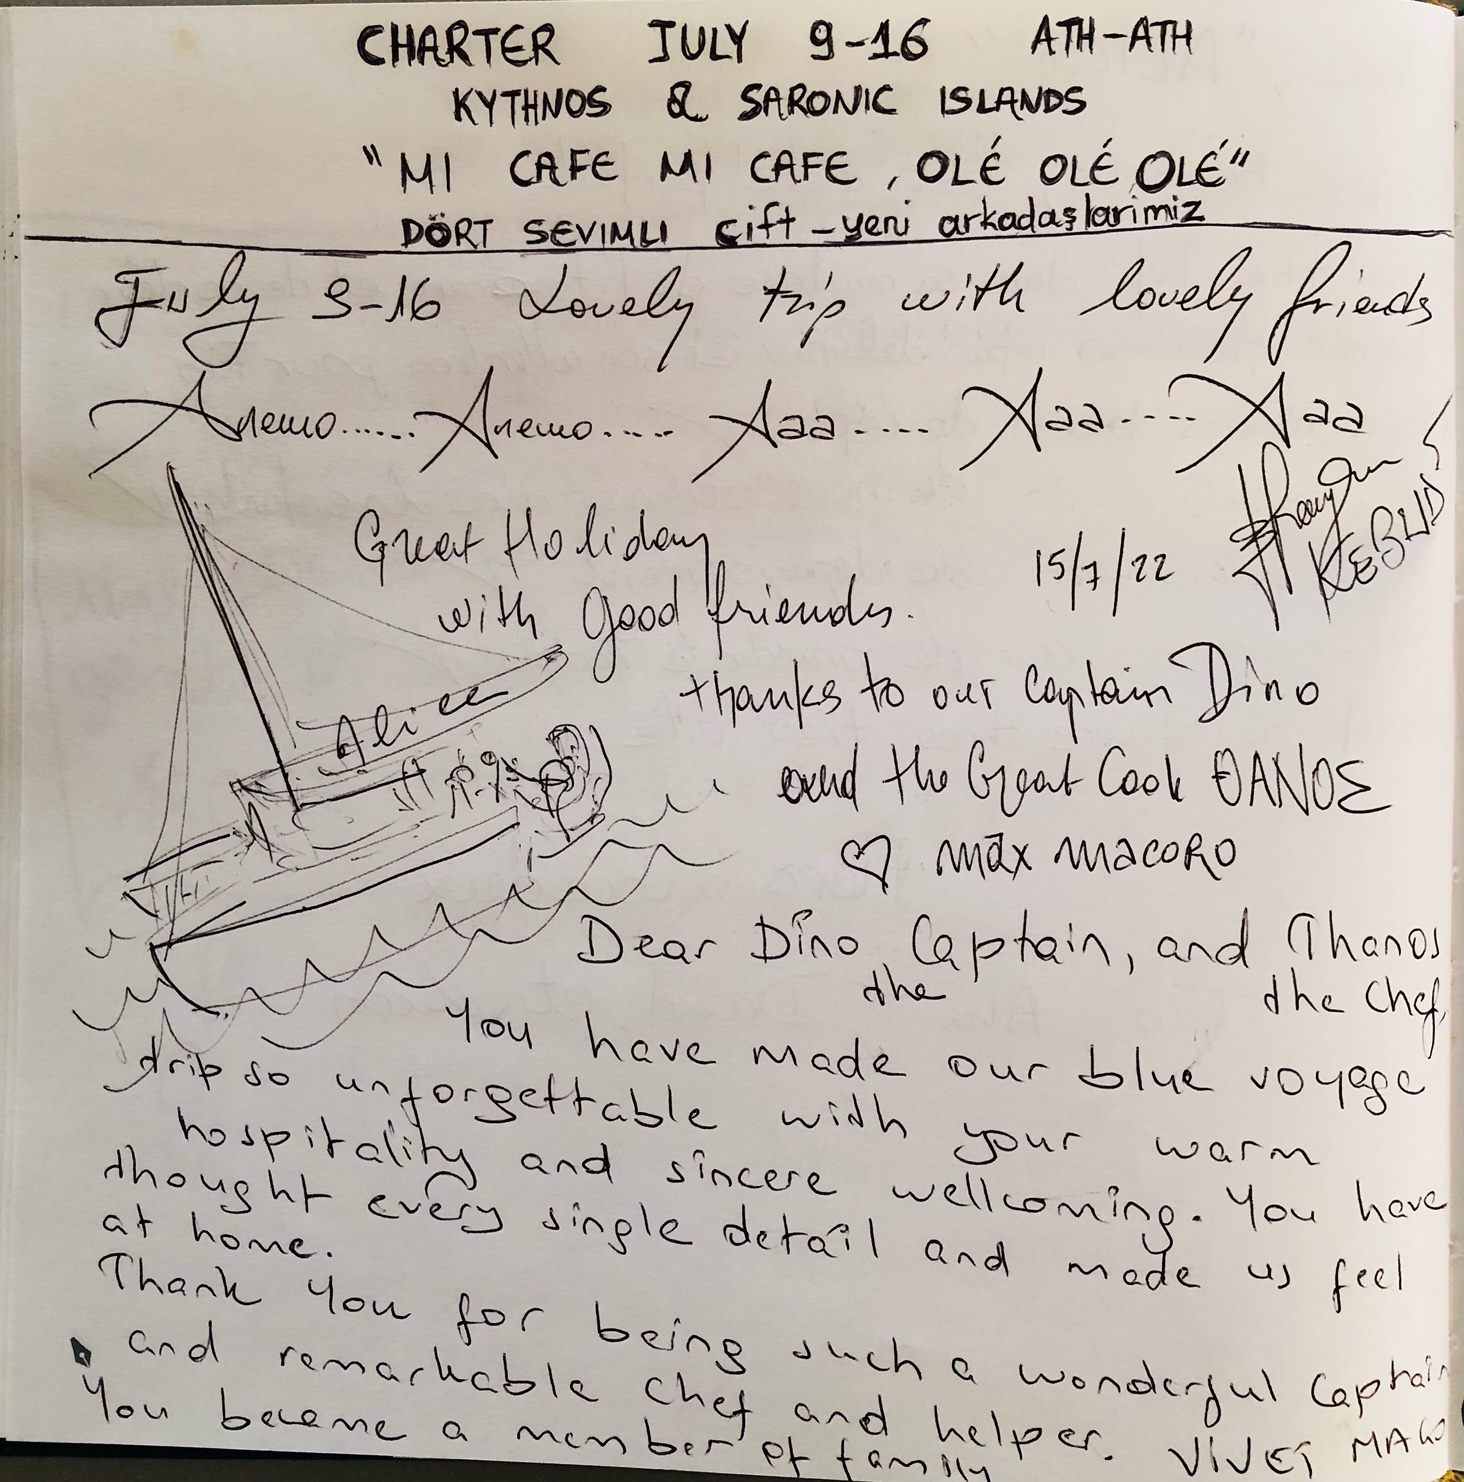 CHARTER JULY 9-16 ATH-ATH
KYTHNOS & SARONIC ISLANDS
"MI CAFE MI CAFE, OLÉ OLÉ OLÉ"
DÖRT SEVIMLI çift - yeni arkadaşlarimiz
July 9-16 Lovely trip with lovely friends
Anemo...... Anemo..... Aaa..... Aaa..... Aaa
KEBUD
Great Holiday
with good friends.
15/7/22
thanks to our captain Dino
and the Great Cook ΘΑΝΟΣ
♡ max macoro
Alice
Dear Dino the Captain, and Thanos the Chef,
You have made our blue voyage
trip so unforgettable with your warm
hospitality and sincere wellcoming. You have
thought every single detail and made us feel
at home.
Thank you for being such a wonderful Captain
and remarkable chef and helper.
You became a member of family
VIVET